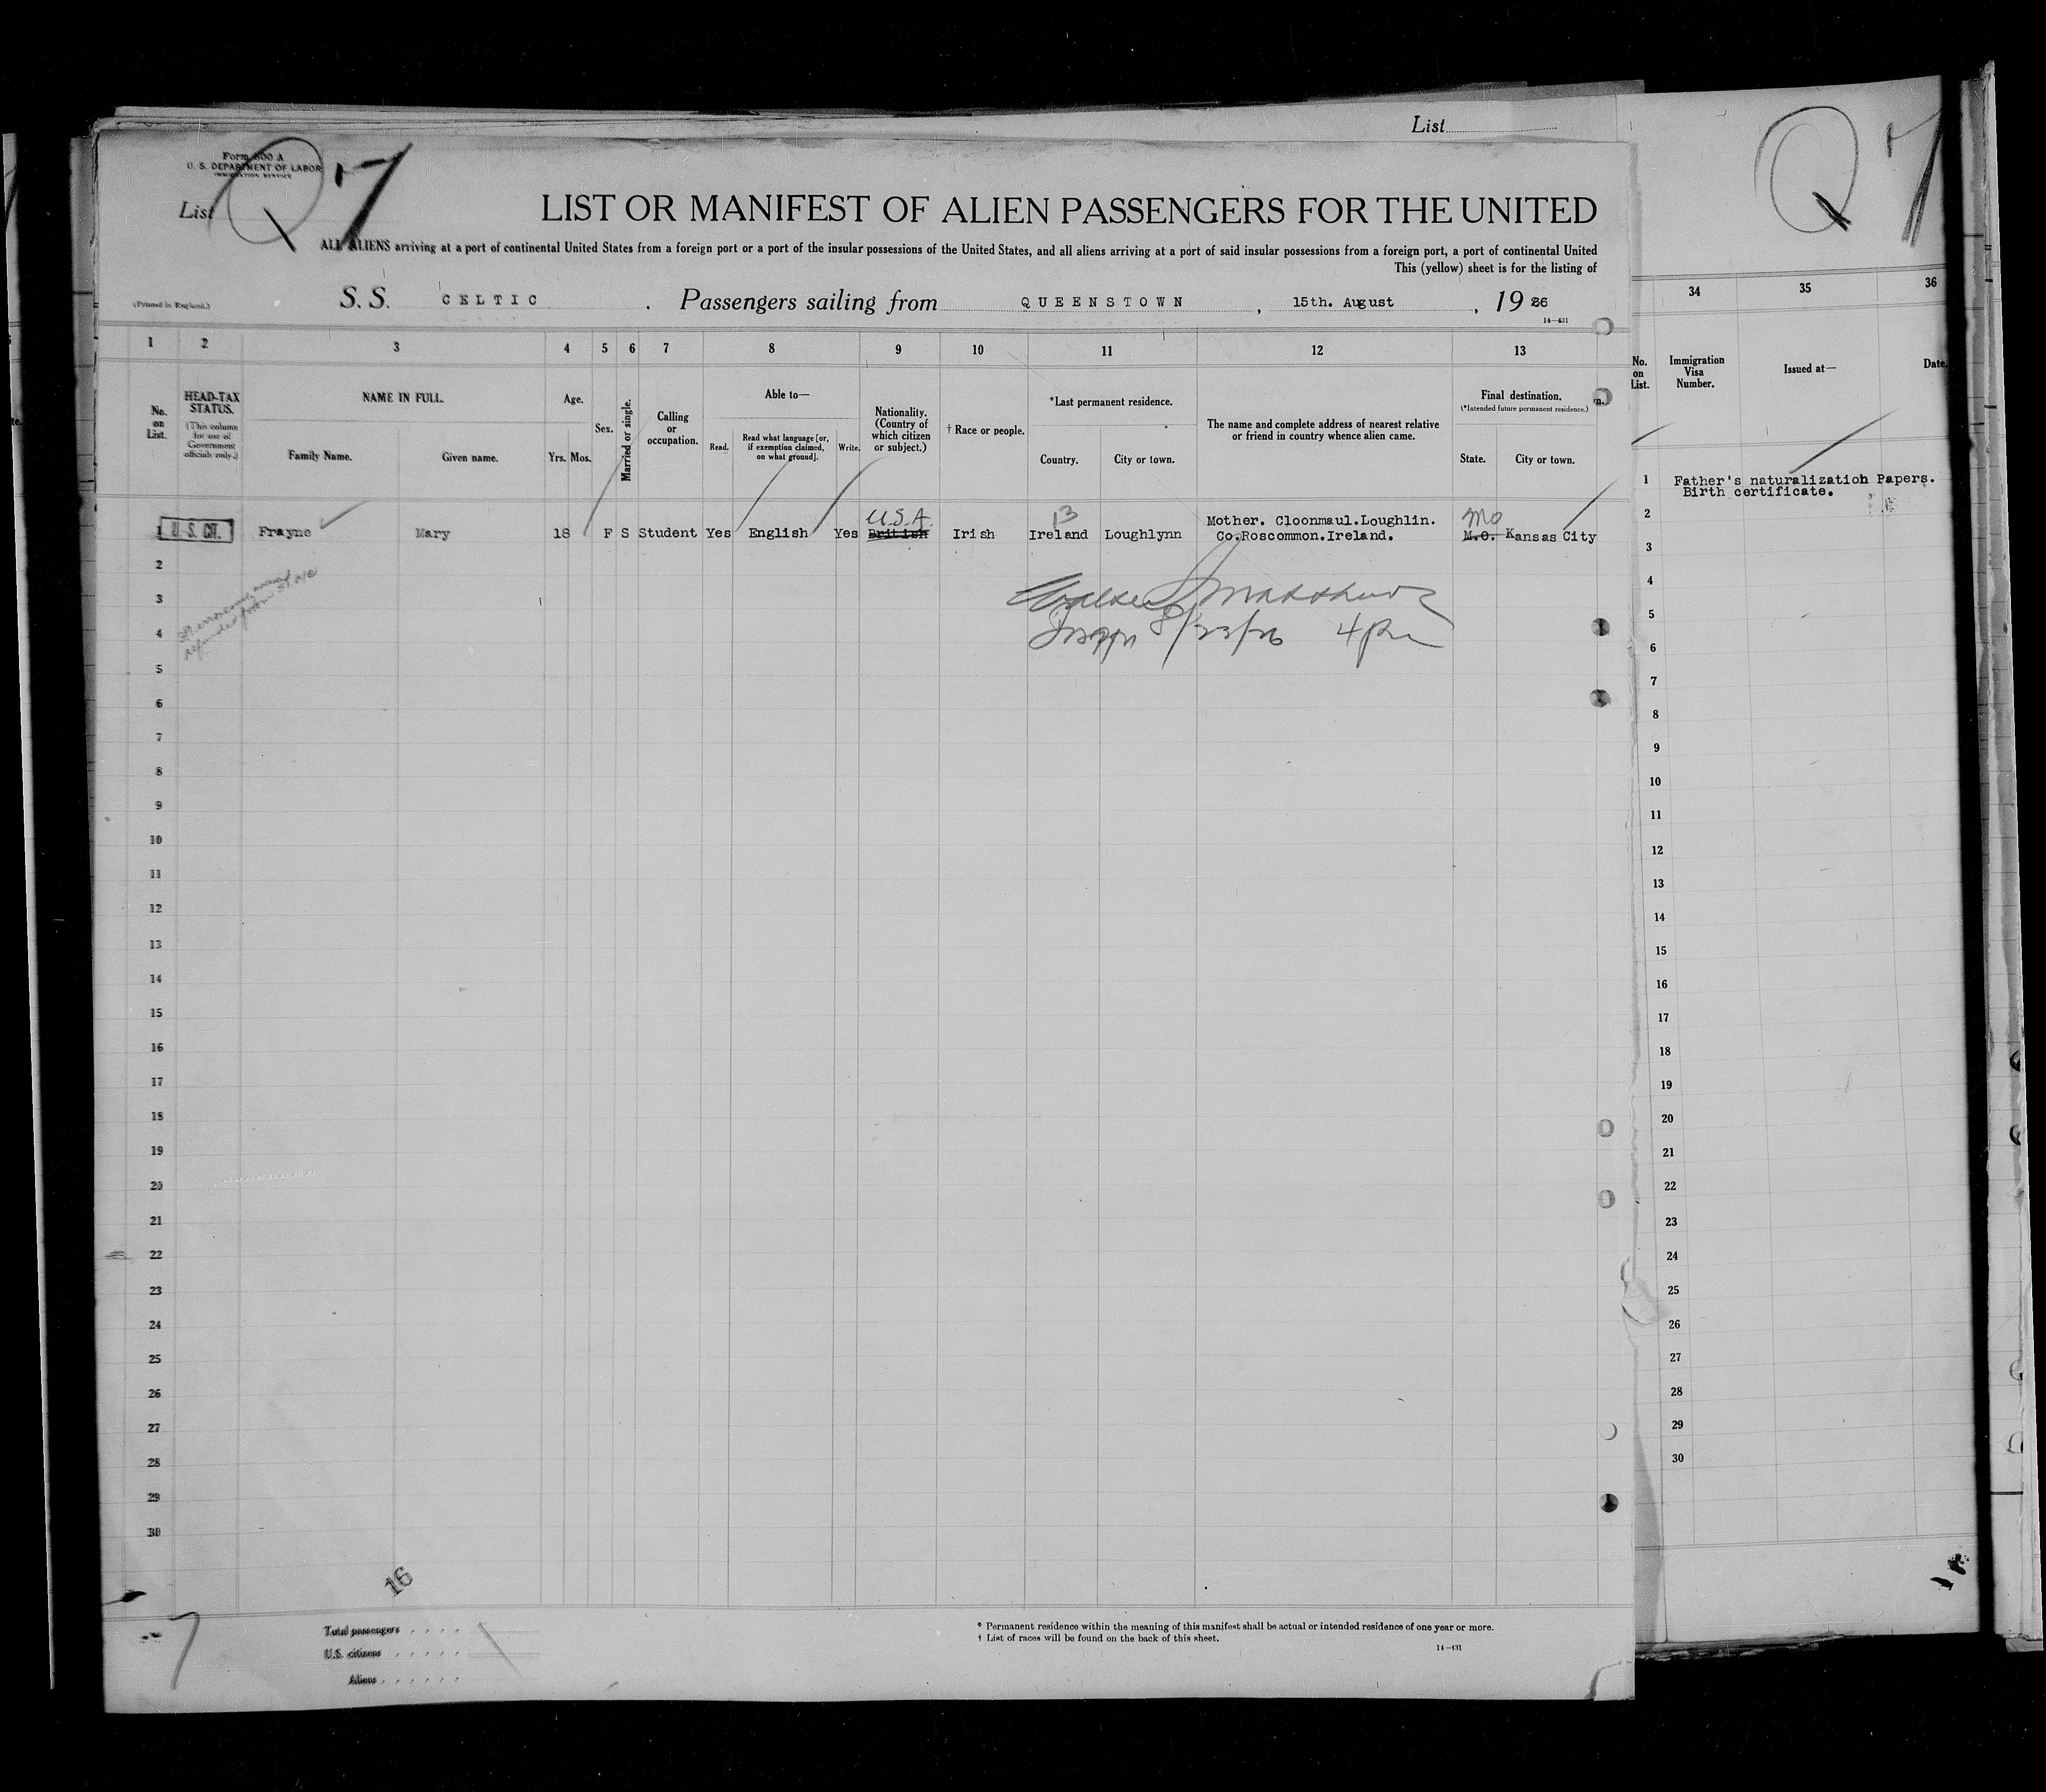 List
Form 500 A
U. S. DEPARTMENT OF LABOR
IMMIGRATION SERVICE
List Q 7
LIST OR MANIFEST OF ALIEN PASSENGERS FOR THE UNITED
ALL ALIENS arriving at a port of continental United States from a foreign port or a port of the insular possessions of the United States, and all aliens arriving at a port of said insular possessions from a foreign port, a port of continental United
This (yellow) sheet is for the listing of
(Printed in England.)
S. S. CELTIC . Passengers sailing from QUEENSTOWN , 15th. August , 19 26
14—431
1 2 3 4 5 6 7 8 9 10 11 12 13
No. on List.
HEAD-TAX STATUS.
(This column for use of Government officials only.)
NAME IN FULL.
Family Name. Given name.
Age.
Yrs. Mos.
Sex.
Married or single.
Calling or occupation.
Able to—
Read. Read what language [or, if exemption claimed, on what ground]. Write.
Nationality. (Country of which citizen or subject.)
† Race or people.
*Last permanent residence.
Country. City or town.
The name and complete address of nearest relative or friend in country whence alien came.
Final destination.
(*Intended future permanent residence.)
State. City or town.
U.S.A. B Mo
1 U. S. CIT. Frayne Mary 18 F S Student Yes English Yes British Irish Ireland Loughlynn Mother. Cloonmaul.Loughlin. M.O. Kansas City
Co.Roscommon.Ireland.
2
3
4
8/23/26 4 pm
5
6
7
8
9
10
11
12
13
14
15
16
17
18
19
20
21
22
23
24
25
26
27
28
29
30
16
7
Total passengers
U.S. citizens
Aliens
* Permanent residence within the meaning of this manifest shall be actual or intended residence of one year or more.
† List of races will be found on the back of this sheet.
14—431
Q 7
34 35 36
No. on List.
Immigration Visa Number.
Issued at—
Date
1 Father's naturalization Papers.
Birth certificate.
2
3
4
5
6
7
8
9
10
11
12
13
14
15
16
17
18
19
20
21
22
23
24
25
26
27
28
29
30